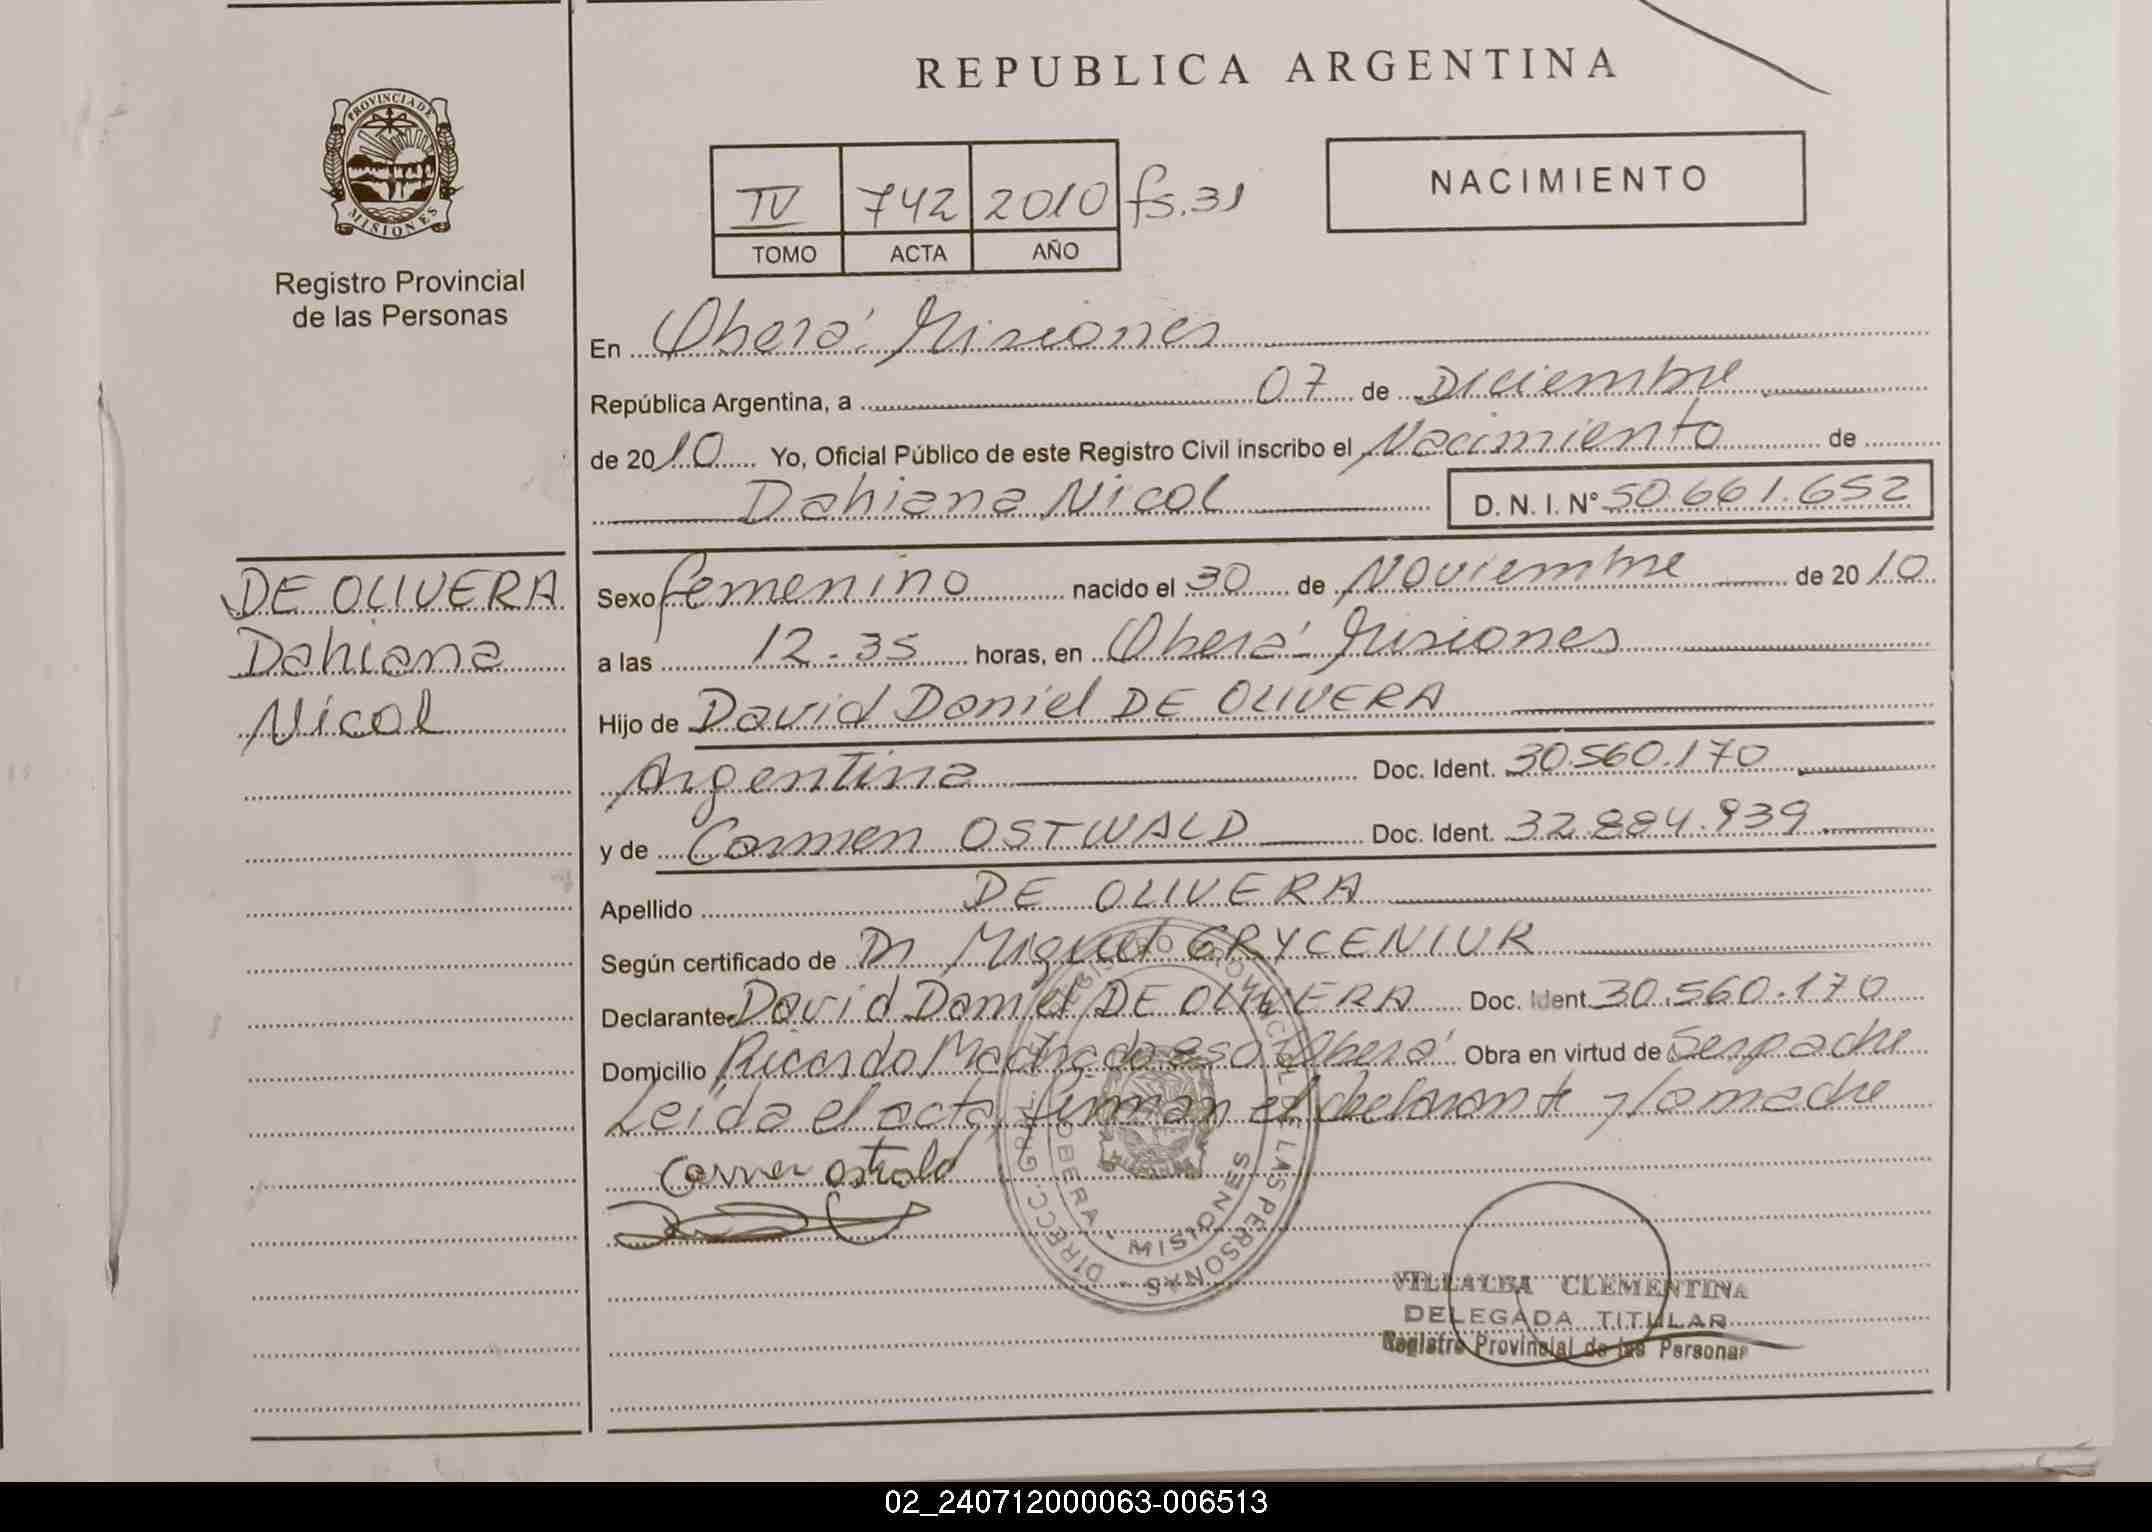 REPUBLICA ARGENTINA
PROVINCIA DE
MISIONES
Registro Provincial
de las Personas
NACIMIENTO
IV 742 2010 fs. 31
TOMO ACTA AÑO
En Oberá: Misiones
República Argentina, a 07 de Diciembre
de 2010 Yo, Oficial Público de este Registro Civil inscribo el Nacimiento de
Dahiana Nicol D. N. I. N° 50.661.652
DE OLIVERA
Dahiana
Nicol
Sexo femenino nacido el 30 de Noviembre de 2010
a las 12.35 horas, en Oberá: Misiones
Hijo de David Daniel DE OLIVERA
Argentina Doc. Ident. 30.560.170
y de Carmen OSTWALD Doc. Ident. 32.884.939
Apellido DE OLIVERA
Según certificado de Dr Miguel GRYCENIUK
Declarante David Daniel DE OLIVERA Doc. Ident 30.560.170
Domicilio Ricardo Machado Oberá Obra en virtud de Ser padre
Leída el acta, firman el declarante y la madre
Carmen ostwald
DIRECC. GRAL. REGISTRO PROVINCIAL DE LAS PERSONAS
OBERA - MISIONES
VILLALBA CLEMENTINA
DELEGADA TITULAR
Registro Provincial de las Personas
02_240712000063-006513